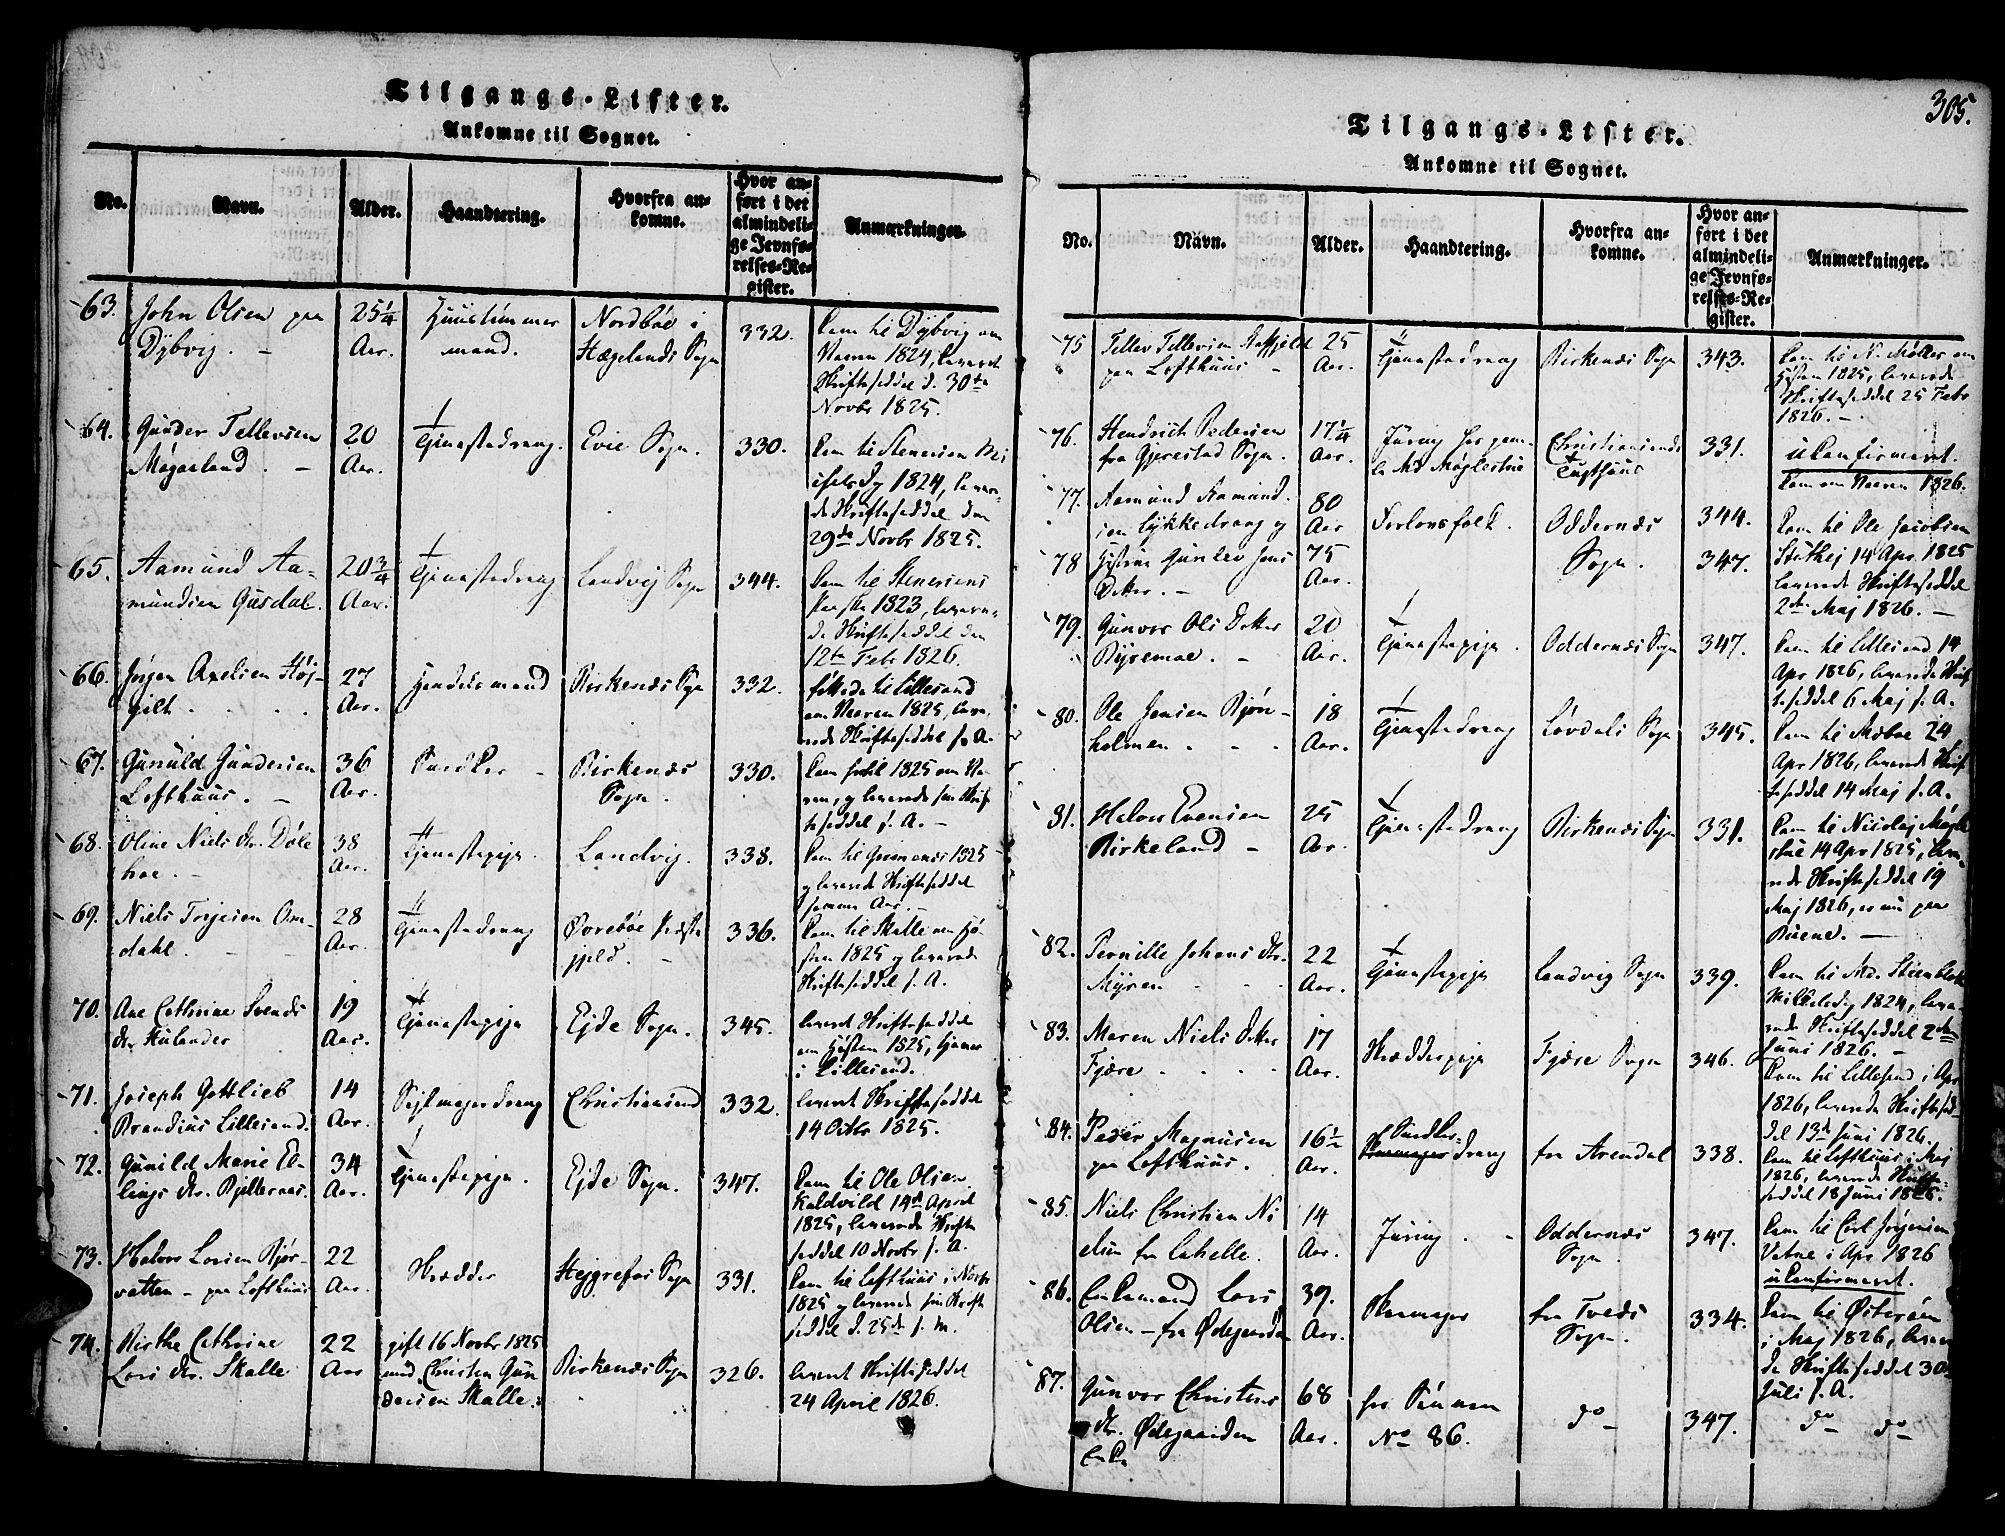 Tilgangs-Lister.
Ankomne til Sognet.
No.
Navn.
Alder.
Haandtering.
Hvorfra an-
komne.
Hvor an-
ført i det
almindeli-
ge Jevnfø-
relses-Re-
gister.
Anmærkninger.
63.
John Olsen paa
Dybvig.
25 1/4
Aar.
mand.
Nordbøe i
Hægelands Sogn
332.
Kom til Dybvig om
Vaaren 1824, leveret
Skriftseddel d. 30te
Novbr 1825.
64.
Gunder Tellevsen
20
Aar.
Tjenestedreng.
Evie Sogn.
330.
1824, lever-
de Skriftseddel den
29de Novbr 1825.
65.
Aamund Aa-
mundsen Gusdal.
20 3/4
Aar.
Tjenestedreng
Landvig Sogn
344.
Kom til Stenersens
1823, levere-
de Skriftseddel den
12te Febr 1826.
66.
Jørgen Axelsen Høj-
gilt
27
Aar.
Handelsmand
Birkenæs Sogn
332.
til Lillesand
om Vaaren 1825, leve-
rede Skriftseddel s. A.
67.
Gunuld Gundersen
Lofthuus.
36
Aar.
Snedker
Birkenæs
Sogn.
330.
Kom hertil 1825 om Va-
ren, og leverede sin Skrift-
seddel s. A.
68.
Oline Niels Dr. Døle
hoe.
38
Aar.
Tjenestepige.
Landvig.
338.
Kom til 1825
og leverede Skriftseddel
samme Aar.
69.
Niels Terjesen Om-
dahl.
28
Aar.
Tjenestedreng
Øvrebøe Præste
gjeld.
336.
Kom til Skalle om Hø-
sten 1825 og leverede
Skriftseddel s. A.
70.
Ane Cathrine Svends
dr.
19
Aar.
Tjenestepige
Ejde Sogn.
345.
leveret Skriftseddel
om Høsten 1825, tjener
i Lillesand.
71.
Joseph Gottlieb
Brandius Lillesand.
14
Aar.
Sejlmagerdreng
Christiansand
332.
leveret Skriftseddel
14 Octbr 1825.
72.
Gunild Marie El-
lings dr.
34
Aar.
Tjenestepige.
Ejde Sogn.
347.
Kom til Ole Olsen
Kaldvild 14de April
1825, leverede Skrift
seddel 10 Novbr s. A.
73.
Halvor Larsen Bjør-
vatten - paa Lofthuus
22
Aar.
Skrædder
Hejgrefos Sogn
331.
Kom til Lofthuus i Novbr
1825 og leverede sin Skrift
seddel d. 25de s. M.
74.
Birthe Cathrine
Lars dr. Skalle
22
Aar
gift 16 Novbr 1825
med Christen Gun
dersen Skalle.
Birkenæs Sogn
326.
leveret Skriftseddel
24 April 1826.
305.
Tilgangs-Lister.
Ankomne til Sognet.
No.
Navn.
Alder.
Haandtering.
Hvorfra an-
komne.
Hvor an-
ført i det
almindeli-
ge Jevnfø-
relses-Re-
gister.
Anmærkninger.
75
Tellev Tellevsen
paa Lofthuus
25
Aar.
Tjenestedreng
Birkenæs Sogn
343.
Kom til N. Møller om
Høsten 1825, leverede
Skriftseddel 25 Febr
1826.
76.
Hendrich Pedersen
fra Gjerestad Sogn.
17 1/4
Aar.
Christiansands
Tugthuus
331.
uConfirmeret.
Kom om Vaaren 1826.
77.
Aamund Aamund-
sen Lykkedrang og
80
Aar
Forlovsfolk.
Oddernæs
Sogn.
344.
Kom til Ole Jacobsen
14 Apr. 1825
leverede Skriftseddel
2den Maj 1826.
78
Hustrue Gunlev Jens
Datter.
75
Aar.
347.
79.
Gunvor Ols Datter
Byremoe.
20
Aar.
Tjenestepige.
Oddernæs Sogn
347.
Kom til Lillesand 14
Apr 1826, leverede Skrif-
tseddel 6 Maj s. A.
80.
Ole Jensen Bjørn-
holmen
18
Aar.
Tjenestedreng
Løvdals Sogn
345.
Kom til Mæbøe 24
Apr 1826, leverede Skrif-
tseddel 14 Maj s. A.
81.
Halvor Evensen
Birkeland
25
Aar.
Tjenestedreng
Birkenæs Sogn
331.
Kom til Nicolaj Mægle
stue 14 Apr 1825, leve-
rede Skriftseddel 19
Maj 1826, er nu paa
82.
Pernille Johans dr.
Myren
22
Aar.
Tjenestepige
Landvig Sogn
339.
Kom til
1824, leve-
rede Skriftseddel 2den
Juni 1826.
83.
Maren Niels Datter
Fjære
17
Aar.
Skrædderpige
Fjære Sogn
346.
Kom til Lillesand i Apr
1826, leverede Skriftsed-
del 13de Juni 1826.
84.
Peder Magnusen
paa Lofthuus.
16 1/2
Aar.
Snedker-
dreng
fra Arendal
338.
Kom til Lofthuus i Maj
1826, leverede Skrift-
seddel 18 Juni 1826.
85.
Niels Christian Ni
elsen fra
14
Aar.
Oddernæs
Sogn.
347.
Kom til Carl Jørgensen
Vatne i Apr 1826
uConfirmeret.
86.
Enkemand Lars
Olsen - fra Ødegaarden
39.
Aar.
Skomager
fra Tveds
Sogn.
334.
Kom til Østerøen
i Maj 1826, levere
de Skriftseddel 30
Juli s. A.
87.
Gunvor Christens
dr. Ødegaarden
Enke
68
Aar.
hos Sønnen
No 86.
do
347.
do do